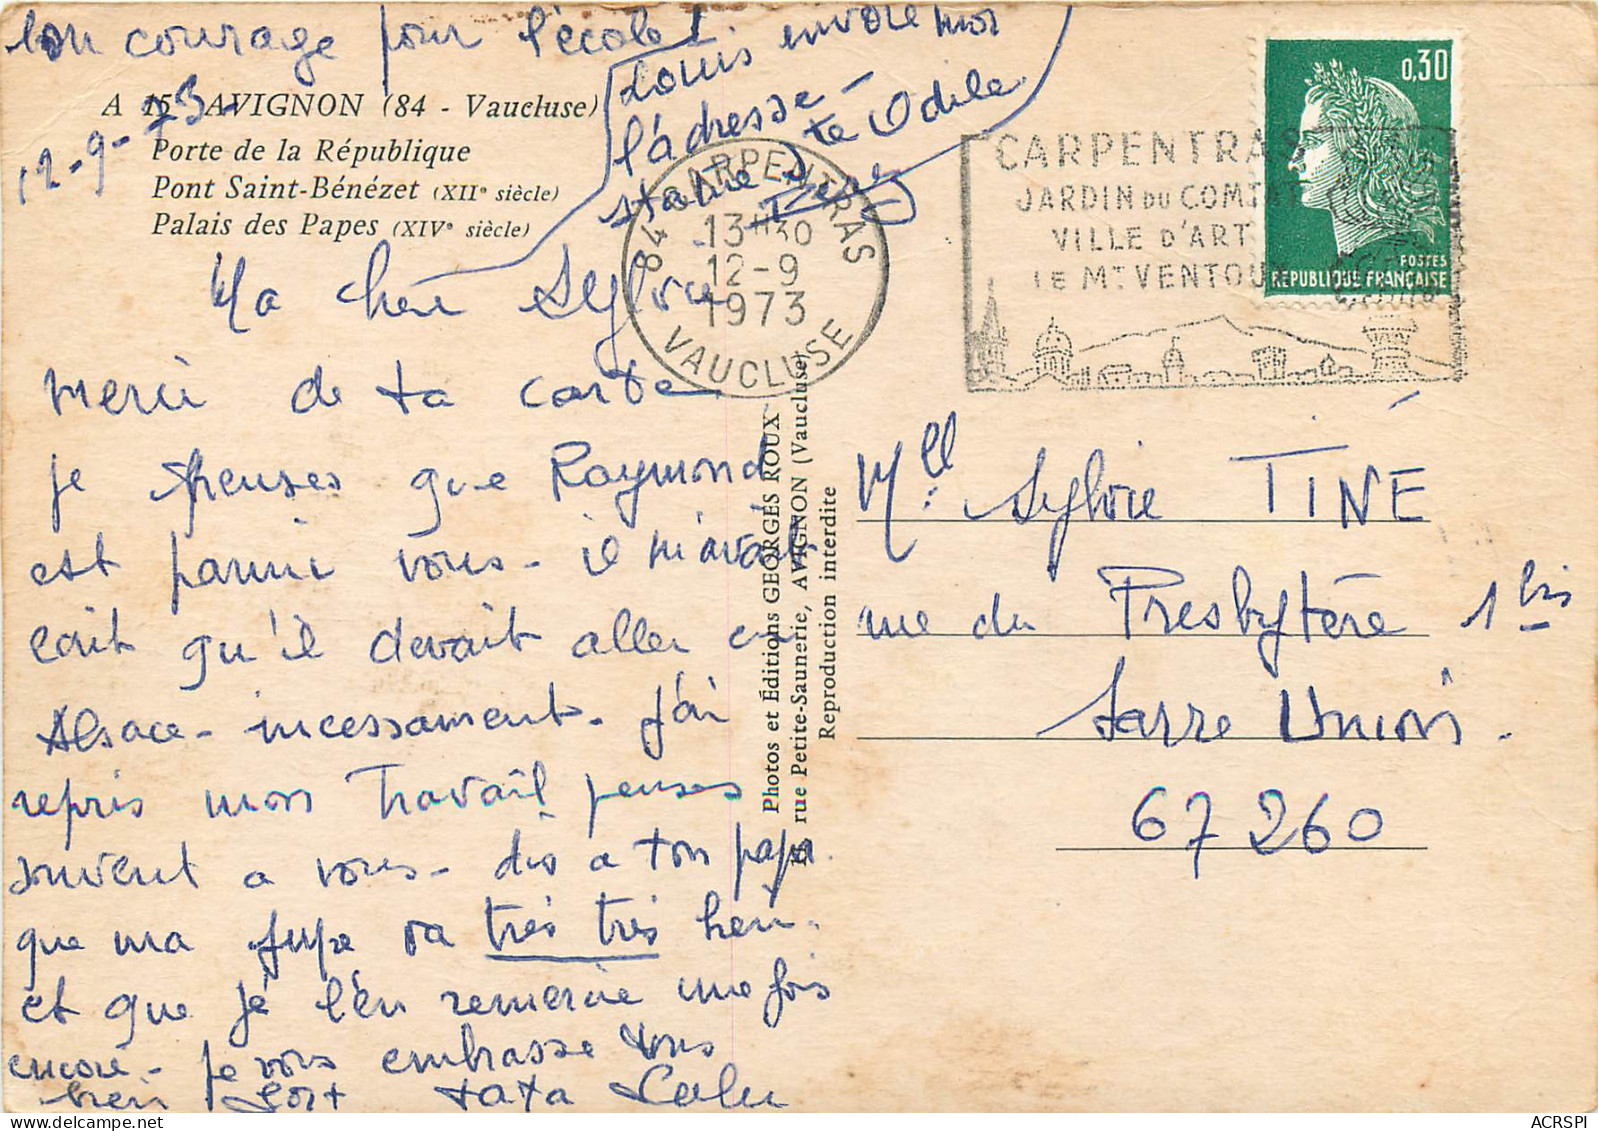 bon courage pour l'école!
Louis envoie moi
l'adresse -
de Ste Odile
12-9-73-
A 15 - AVIGNON (84 - Vaucluse)
Porte de la République
Pont Saint-Bénézet (XIIe siècle)
Palais des Papes (XIVe siècle)
Ma chère Sylvie
merci de ta carte
je penses que Raymond
est parmi vous - il m'avait
écrit qu'il devait aller en
Alsace - incessament - j'ai
repris mon travail penses
souvent a vous - dis a ton papa
que ma jupe va très très bien.
et que je l'en remercie une fois
encore - je vous embrasse tous
bien fort tata Lulu
84 CARPENTRAS
13H30
12-9
1973
VAUCLUSE
CARPENTRAS
JARDIN DU COMTAT
VILLE D'ART
LE MT VENTOUX
0,30
POSTES
REPUBLIQUE FRANÇAISE
Photos et Éditions GEORGES ROUX
rue Petite-Saunerie, AVIGNON (Vaucluse)
Reproduction interdite
Mlle Sylvie TINÉ
rue du Presbytère 1 bis
Sarre Union.
67260
ACRSPI